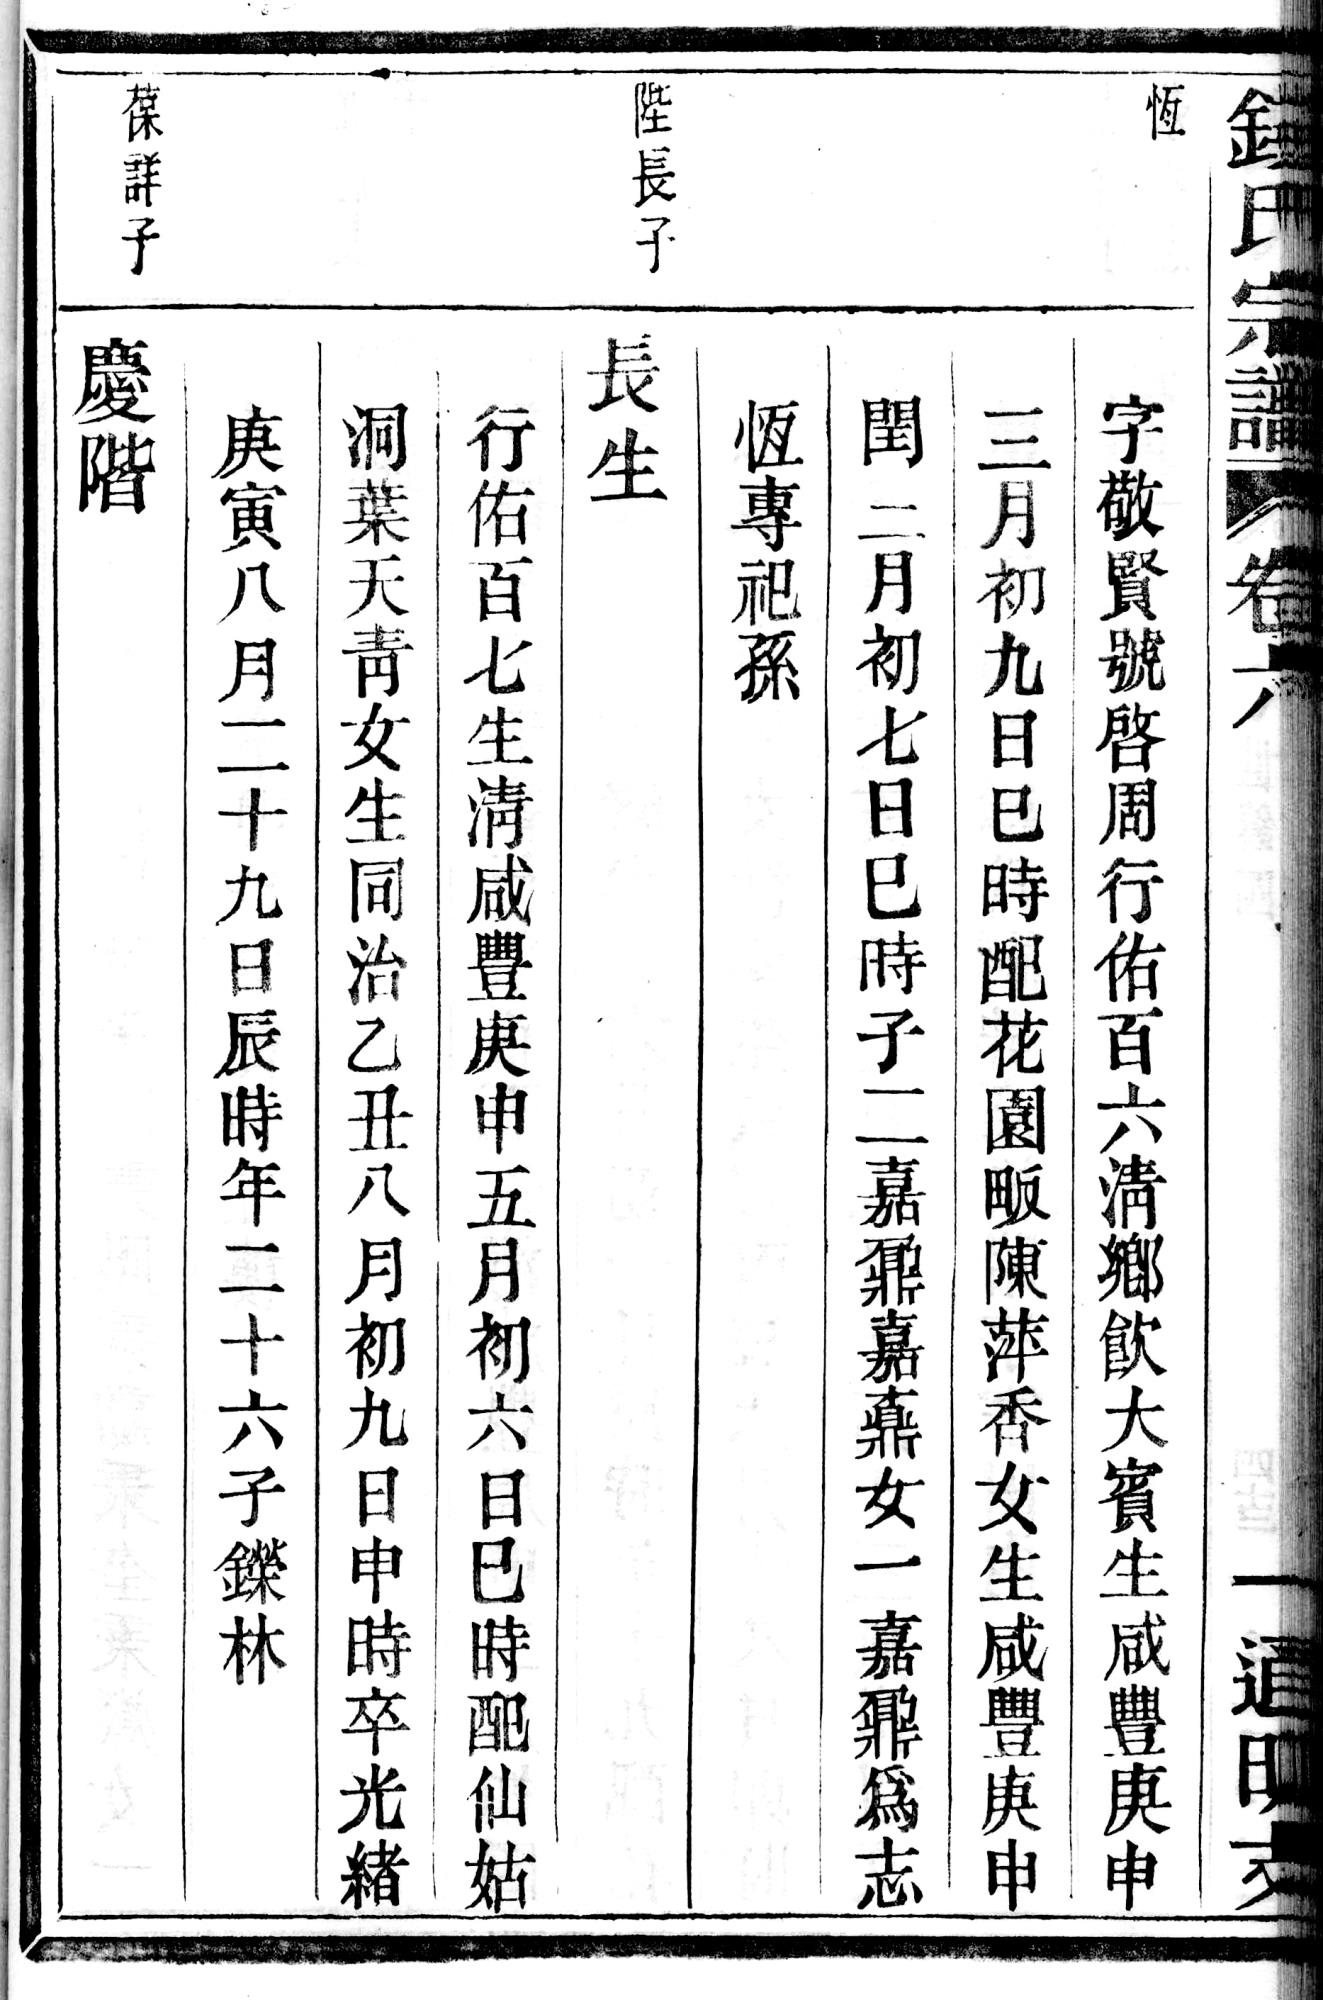 鍾氏宗譜 卷六 一 道明支
恆
字敬賢號啓周行佑百六淸鄉飮大賓生咸豐庚申
三月初九日巳時配花園畈陳萍香女生咸豐庚申
閏二月初七日巳時子二嘉鼐嘉鼒女一嘉鼐爲志
恆專祀孫
陞長子
長生
行佑百七生淸咸豐庚申五月初六日巳時配仙姑
洞葉天靑女生同治乙丑八月初九日申時卒光緖
庚寅八月二十九日辰時年二十六子鑠林
葆詳子
慶階